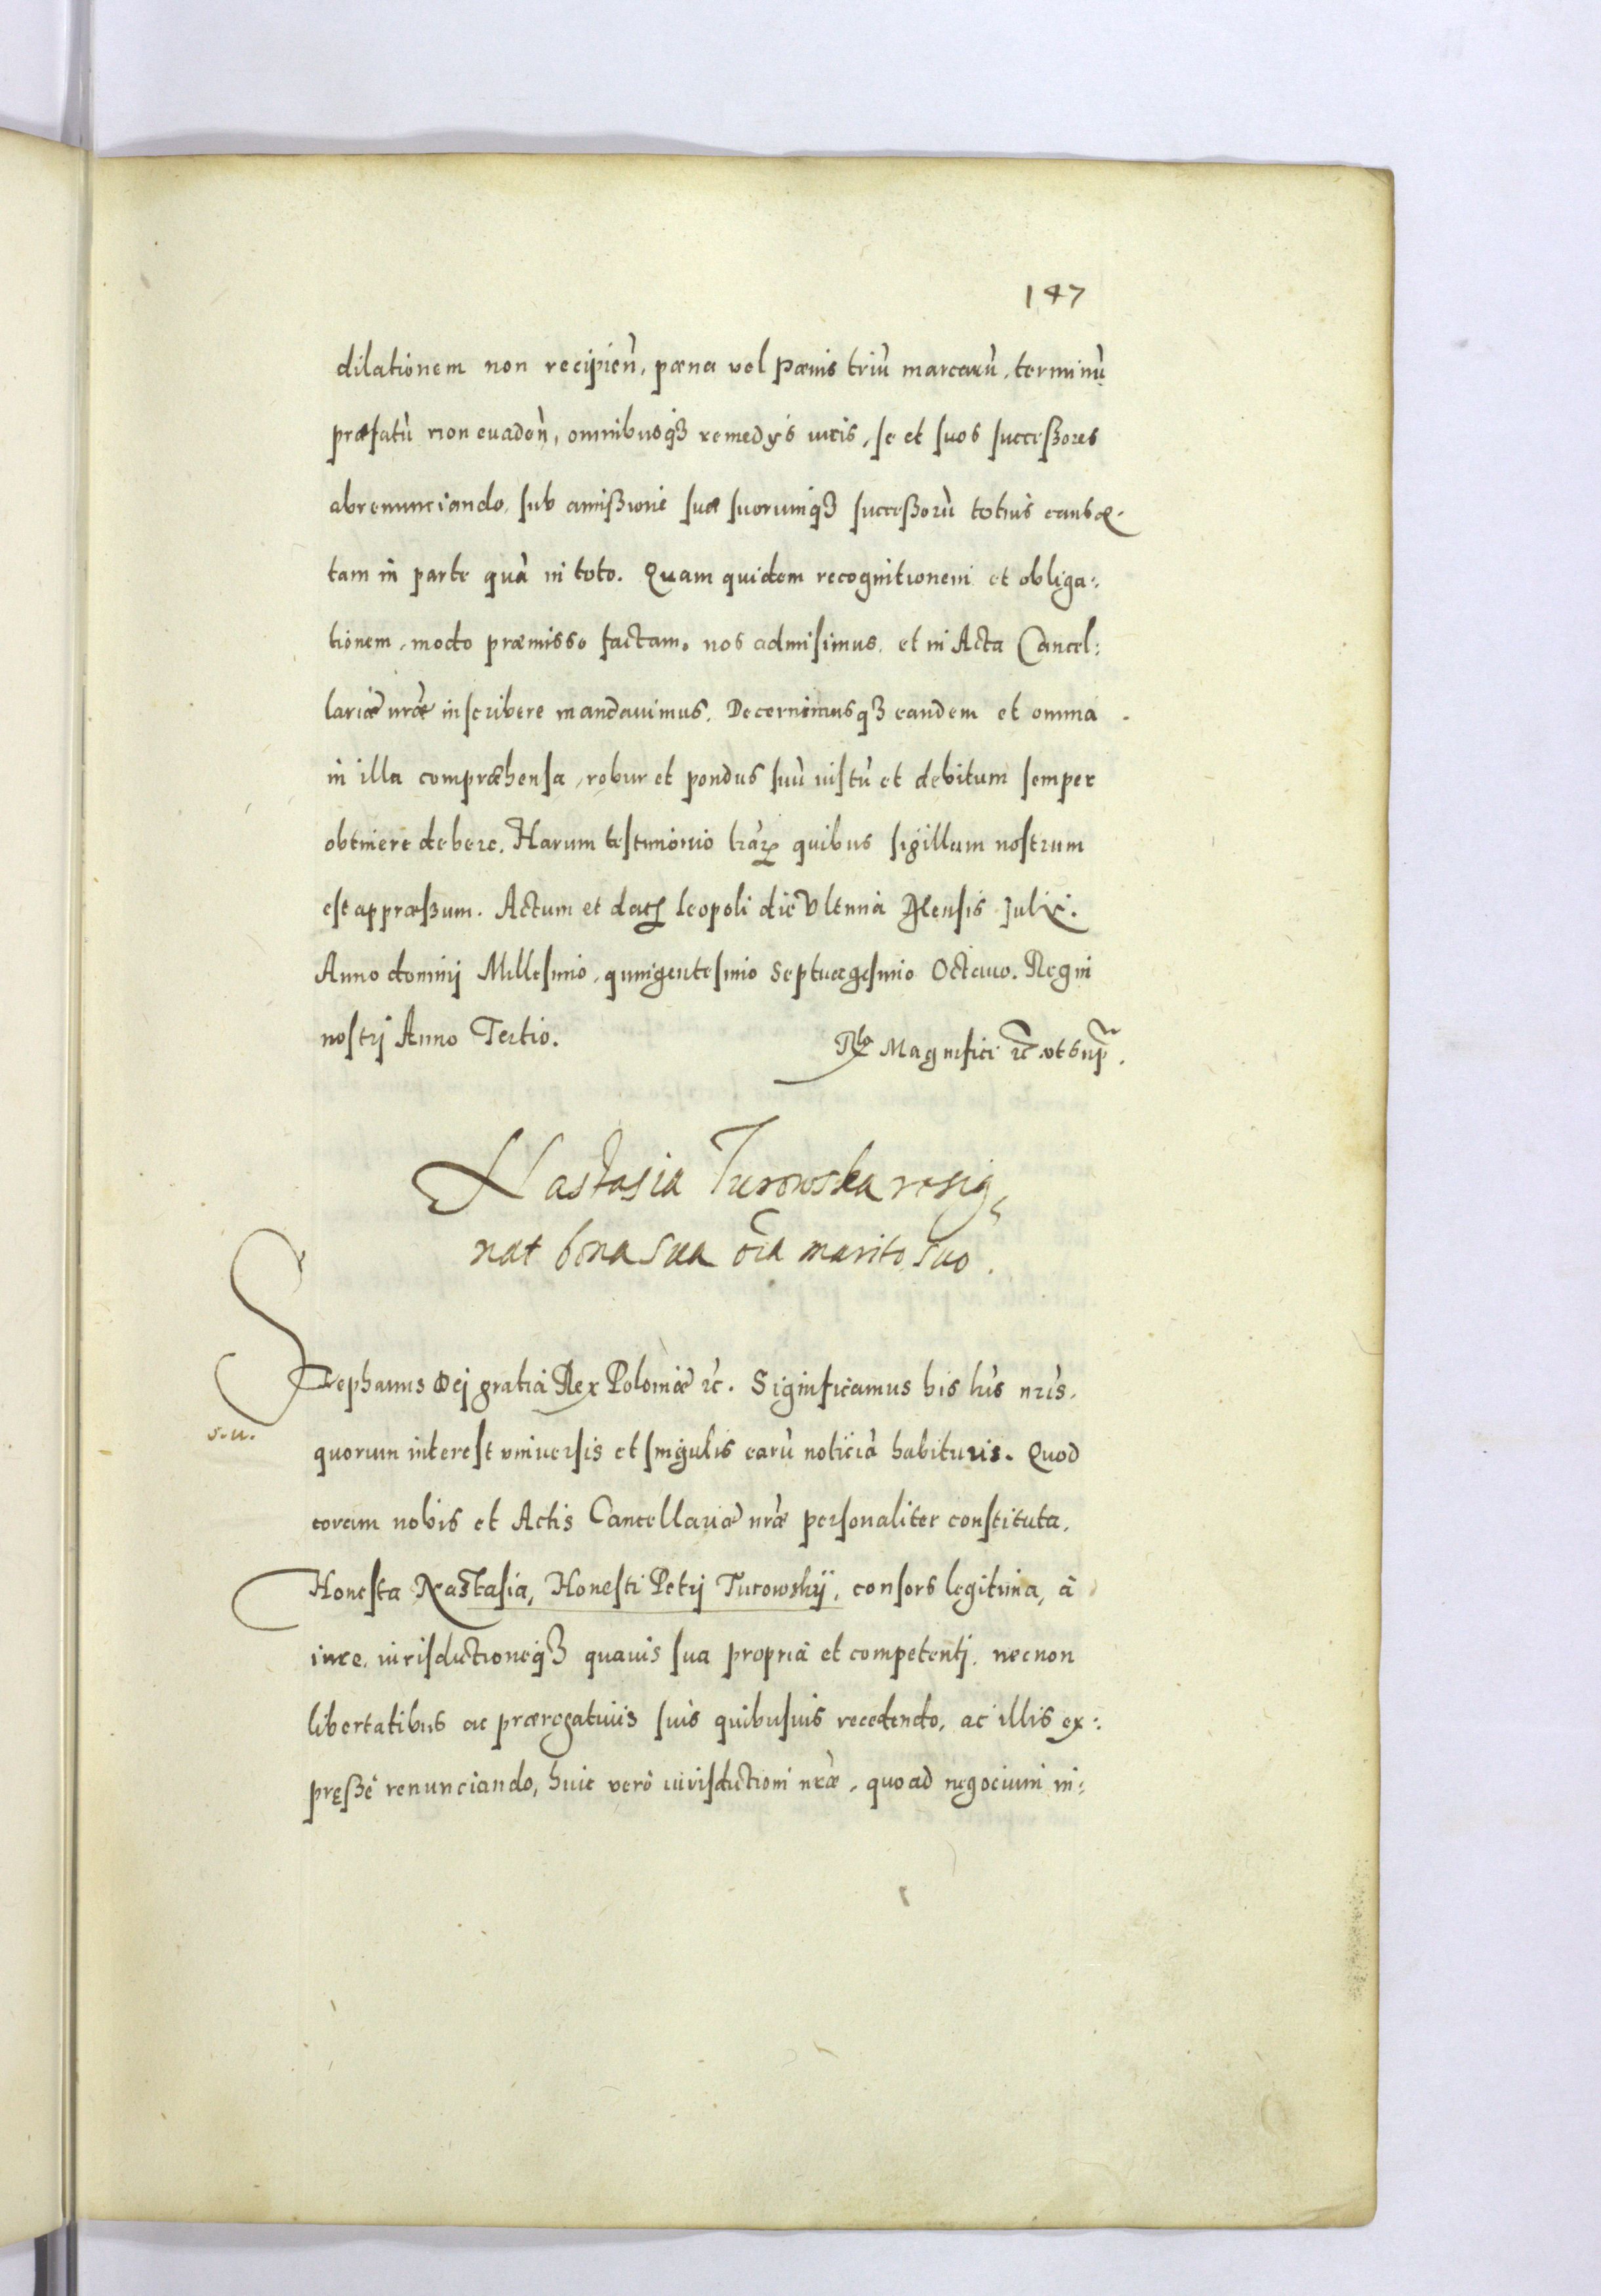 147
dilationem non recipien̄, pœna vel pœnis triū marcarū, terminū
præfatū non euaden̄, omnibusqꝫ remedys iuris, se et suos successores
abrenunciando, sub amissione suæ suorumqꝫ successorū totius causæ.
tam in parte quā in toto. Quam quidem recognitionem et obliga:
tionem, modo præmisso factam, nos admisimus, et in Acta Cancel:
lariæ nrǣ inscribere mandauimus. Decernimusqꝫ eandem et omnia
in illa compræhensa, robur et pondus suū iustū et debitum semper
obtinere debere. Harum testimonio lrār̄ꝫ quibus sigillum nostrum
est appræssum. Actum et datꝫ Leopoli die Vltima Mensis Julij.
Anno dominj Millesimo, quingentesimo Septuagesimo Octauo. Regni
nostrj Anno Tertio.
Rlo Magnifici etc̄ ut sup̄.
Nastasia Turowska resig,
nat bona sua oīa marito suo.
Stephanus Dej gratia Rex Poloniæ etc. Significamus his lrīs nrīs.
s.u.
quorum interest vniuersis et singulis earū noticiā habituris. Quod
coram nobis et Actis Cancellariæ nrǣ personaliter constituta,
Honesta Nastasia, Honesti Petrj Turowskÿ, consors legitima, à
iure, iurisdictioneqꝫ quauis sua propria et competentj, necnon
libertatibus ac prærogatiuis suis quibusuis recedendo, ac illis ex:
pręssè renunciando, huic verò iurisdictioni nrǣ, quoad negocium in: